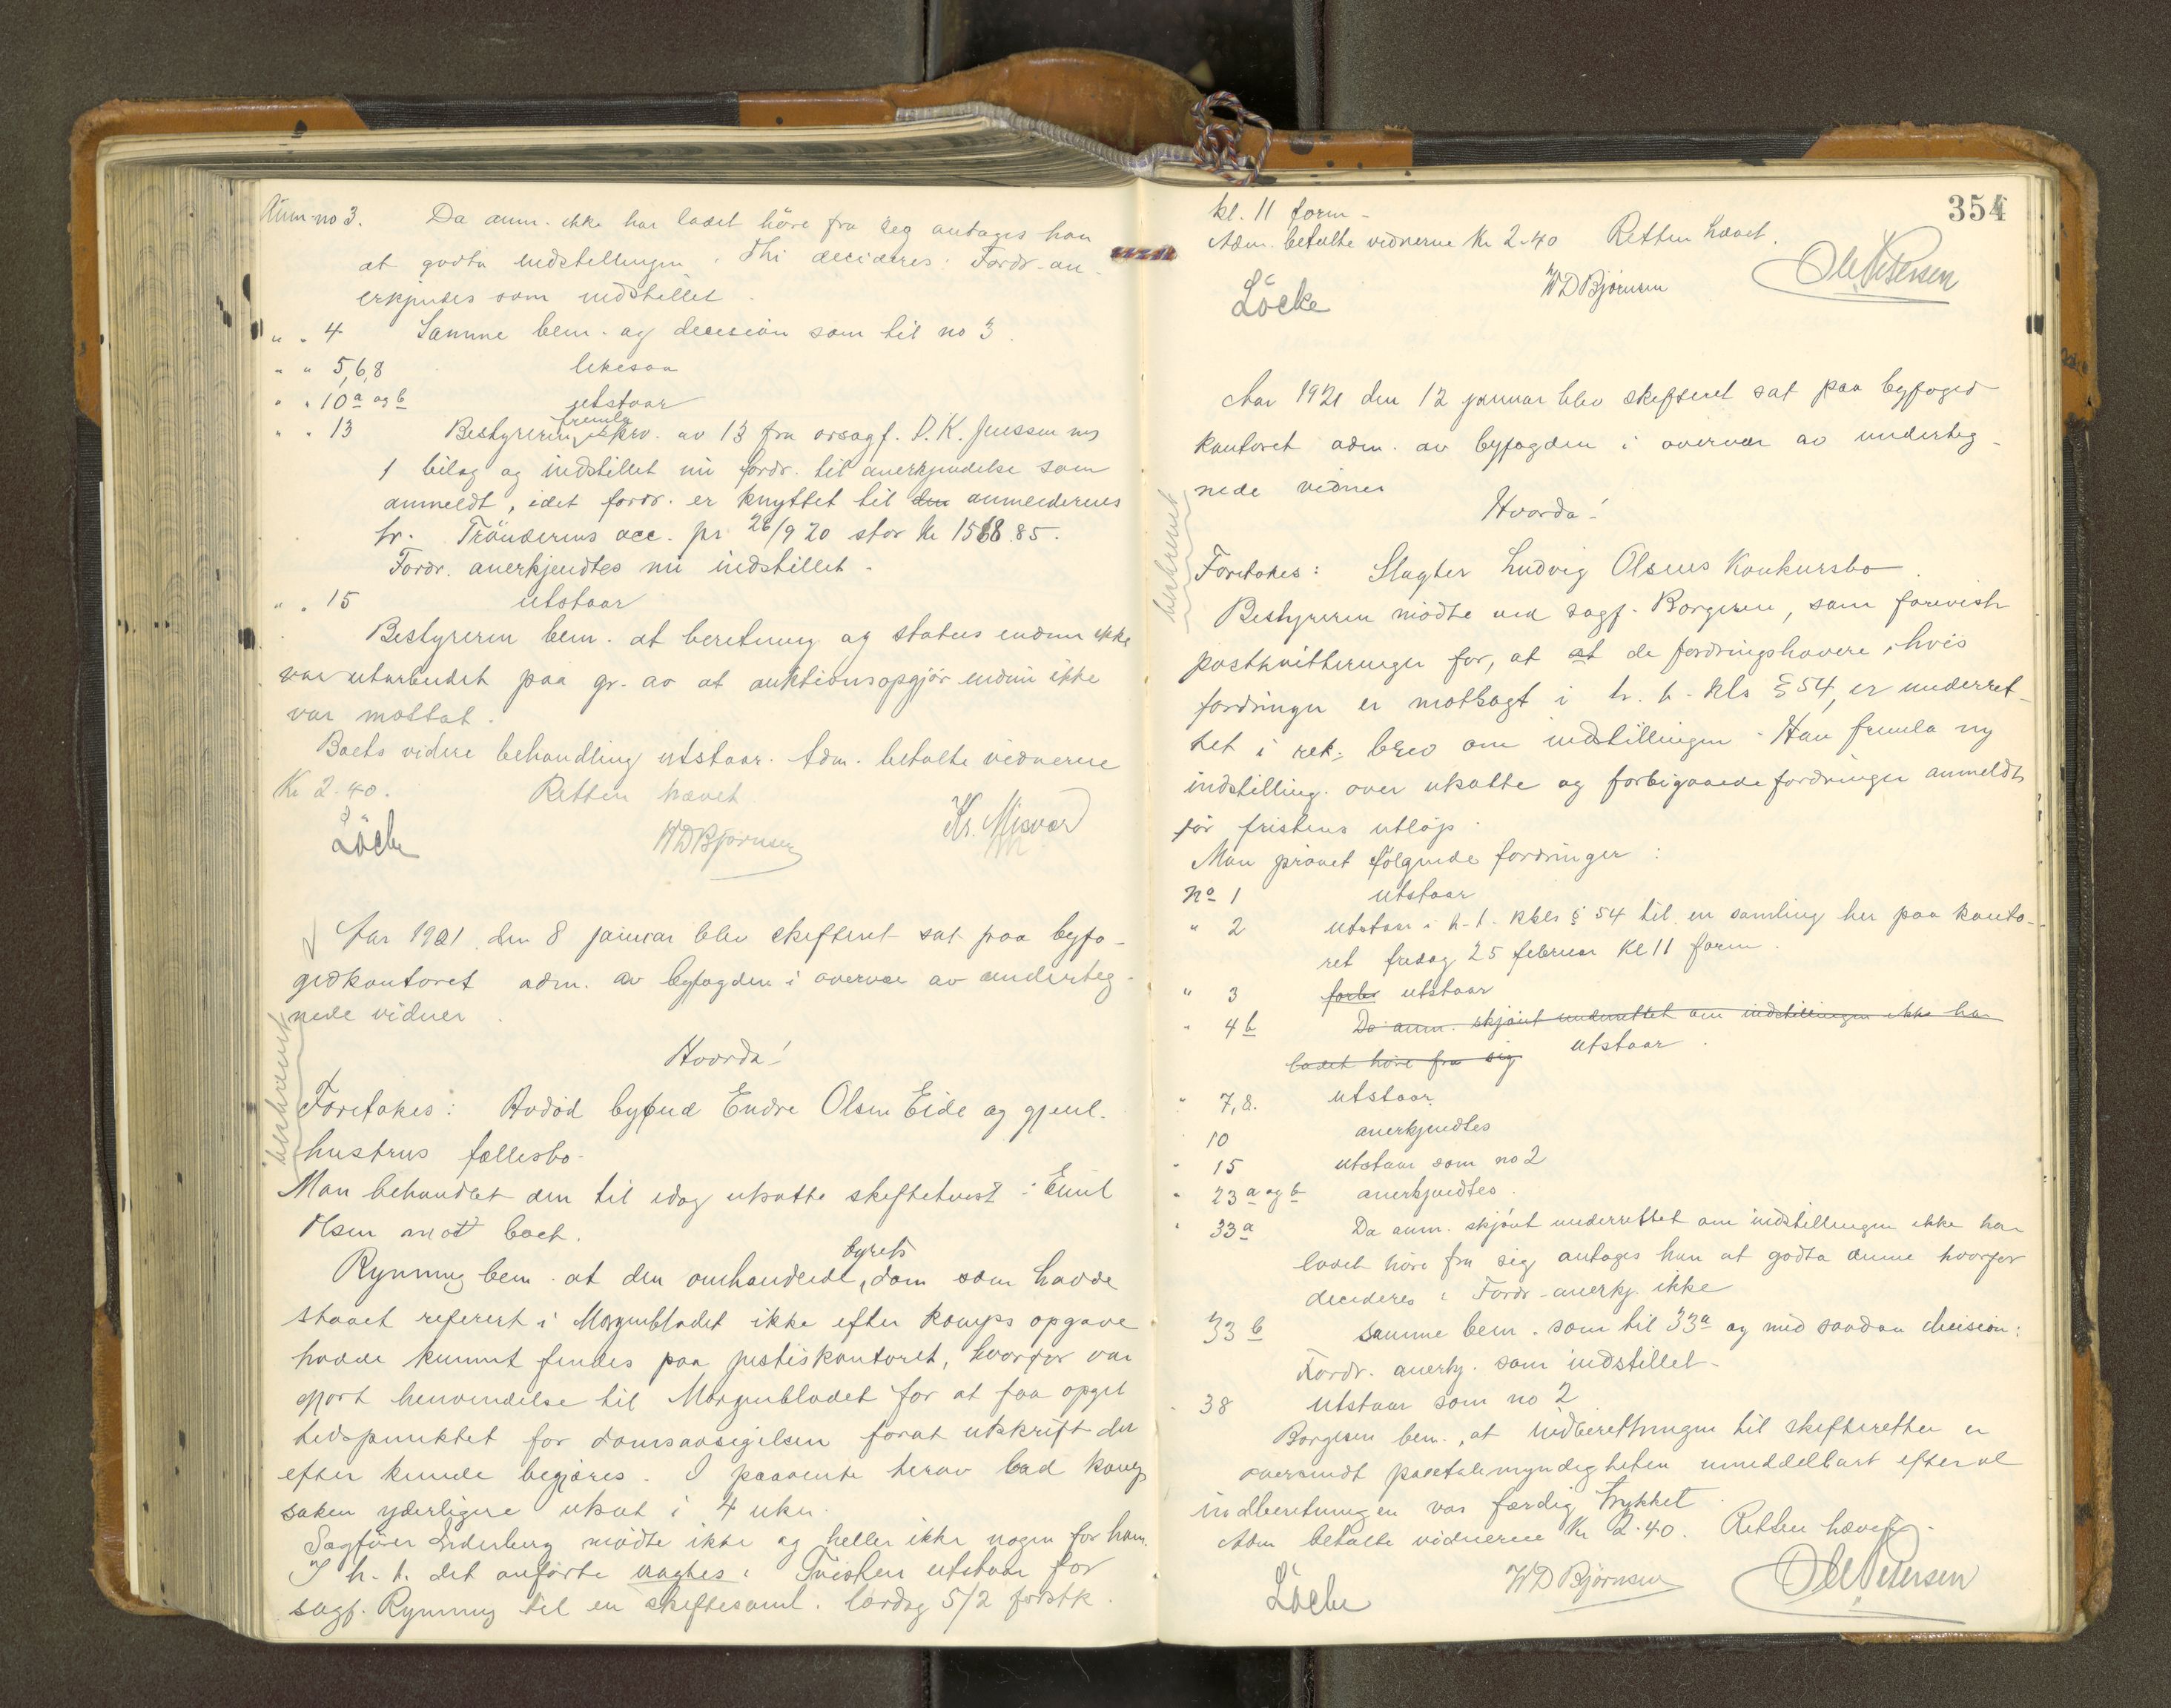 Anm. no 3. Da anm. ikke har ladet höre fra seg antages han
at godta indstellingen. Thi decideres: Fordr. an-
erkjendes som indstillet.
" " 4 Samme bem. og decision som til no 3.
" " 5,6,8 likesaa
" " 10a og b utstaar
" " 13 Bestyreren fremla skriv. av 13 fra orsagf. P. K. Jenssen m
1 bilag og indstillet nu fordr. til anerkjendelse som
anmeldt, idet fordr. er knyttet til den anmelderens
tr. Trönderens acc. pr 26/9 20 stor kr 1568.85.
Fordr. anerkjendtes nu indstillet.
" " 15 utstaar
Bestyreren bem. at beretning og status endnu ikke
var utarbeidet paa gr. av at auktionsopgjör endnu ikke
var mottat.
Boets videre behandling utstaar. Adm. betalte vidnerne
Kr 2.40. Retten hævet
Löcke WDBjørnsen Kr. Misvær
Aar 1921 den 8 januar blev skifteret sat paa byfo-
gedkontoret adm. av byfogden i overvær av underteg-
nede vidner.
Hvorda!
beskrevet
Foretokes: Avdöd bybud Endre Olsen Eide og gjenl.
hustrus fællesbo.
Man behandlet den til idag utsatte skiftetvist: Emil
Olsen mot boet.
Rynning bem. at den omhandlede byrets dom som havde
staaet referert i Morgenbladet ikke efter komps opgave
havde kunnet findes paa justiskontoret, hvorfor var
gjort henvendelse til Morgenbladet for at faa opgit
tidspunktet for domsavsigelsen forat utskrift der
efter kunde begjæres. I paavente herav bad komp
saken yderligere utsat i 4 uker.
Sagförer Lederberg mödte ikke og heller ikke nogen for ham.
I h. t. det anförte vagtes: Tvisten utstaar for
sagf. Rynning til en skiftesaml. lördag 5/2 förstk.
354
kl. 11 form.
Adm. betalte vidnerne Kr 2.40 Retten hævet.
Löcke WDBjørnsen Ole Petersen
Aar 1921 den 12 januar blev skifteret sat paa byfoged
kontoret adm. av byfogden i overvær av underteg-
nede vidner
Hvorda!
beskrevet
Foretokes: Slagter Ludvig Olsens Konkursbo.
Bestyreren mödte ved sagf. Borgersen, som forevist
postkvitteringer for, at at de fordringshavere, hvis
fordringer er motsagt i h. t. kls § 54, er underret-
tet i rek. brev om indstillingen. Han fremla ny
indstilling. over utsatte og forbigaaede fordringer anmeldt
før fristens utlöp.
Man prövet følgende fordringer:
No 1 utstaar
" 2 utstaar i h. t. kkls § 54 til en samling her paa konto-
ret fredag 25 februar kl 11 form.
" 3 utstaar
" 4b Da anm. skjönt underrettet om indstillingen ikke har
ladet höre fra sig utstaar.
" 7,8. utstaar.
10 anerkjendtes
" 15 utstaar som no 2
" 23a og b anerkjendtes.
" 33a Da anm. skjönt underrettet om indstillingen ikke har
ladet höre fra sig antages han at godta denne hvorfor
decideres: Fordr. anerkj. ikke
33 b samme bem. som til 33a og med saadan decision:
Fordr. anerkj. som indstillet.
" 38 utstaar som no 2
Borgersen bem., at indberetningen til skifteretten er
oversendt paatalemyndigheten umiddelbart efter at
indberetningen var færdig trykket.
Adm betalte vidnerne Kr 2.40. Retten hævet.
Löcke WDBjørnsen Ole Petersen